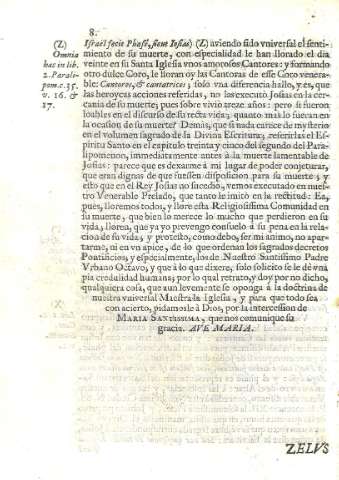 8.
(Z)
Omnia
hæc in lib.
2. Parali-
pom. c. 35.
v. 16. &
17.
Israel fecit Phase, sicut Iosias) (Z) aviendo sido vniversal el senti-
miento de su muerte, con especialidad le han llorado el dia
veinte en su Santa Iglesia vnos amorosos Cantores: y formando
otro dulce Coro, le lloran oy las Cantoras de esse Coro venera-
ble: Cantores, & cantatrices; solo vna diferencia hallo, y es, que
las heroycas acciones referidas, no las executò Iosias en la cer-
cania de su muerte; pues sobre vivio treze años: pero si fueron
loables en el discurso de su recta vida; quanto mas lo fueran en
la ocasion de su muerte? Demàs, que si nada carece de mysterio
en el volumen sagrado de la Divina Escritura; referirlas el Es-
piritu Santo en el capitulo treinta y cinco del segundo del Para-
lipomenon, immediatamente antes à la muerte lamentable de
Josias: parece que es dexarme à mi lugar de poder conjeturar,
que eran dignas de que fuessen disposicion para su muerte; y
esto que en el Rey Josias no sucedio, vemos executado en nues-
tro Venerable Prelado, que tanto le imitò en la rectitud: Ea,
pues, lloremos todos, y llore esta Religiosissima Comunidad en
su muerte, que bien lo merece lo mucho que perdieron en su
vida; llorea, que ya yo prevengo consuelo à su pena en la rela-
cion de su vida; y protesto, como debo, ser mi animo, no apar-
tarme, ni en vn apice, de lo que ordenan los sagrados decretos
Pontificios, y especialmente, los de Nuestro Santissimo Padre
Vrbano Octavo, y que à lo que dixere, solo solicito se le dè vna
pia credulidad humana; por lo qual retrato, y doy por no dicho,
qualquiera cosa, que aun levemente se oponga à la doctrina de
nuestra vniversal Maestra la Iglesia, y para que todo sea
con acierto, pidamosle à Dios, por la intercession de
MARIA SANTISSIMA, que nos comunique su
gracia. AVE MARIA.
ZELVS